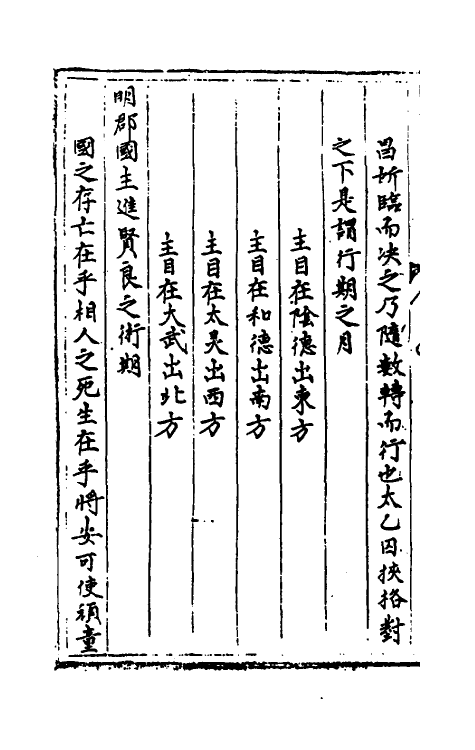 昌所臨而决之乃隨数轉而行也太乙囚挾挌對
之下是謂行期之月
主目在陰德出東方
主目在和德出南方
主目在太炅出西方
主目在大武出北方
明郡國主進賢良之術期
國之存亡在乎相人之死生在乎將安可使頑童